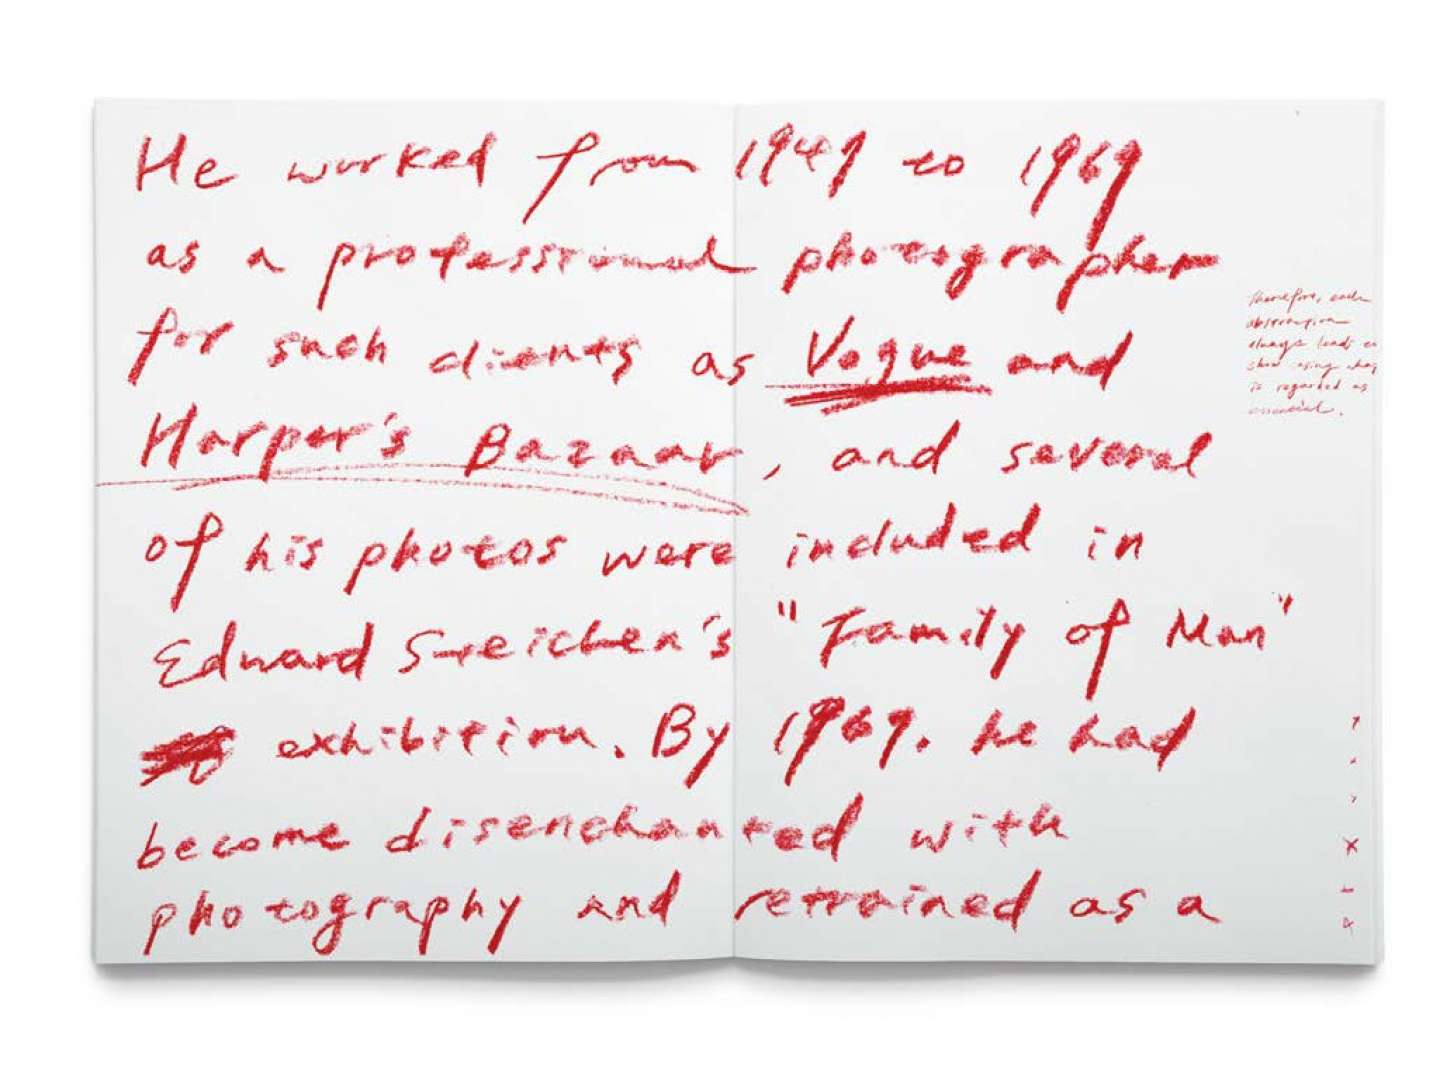 He worked from 1949 to 1969
as a professional photographer
for such clients as Vogue and
Harper's Bazaar, and several
of his photos were included in
Edward Steichen's "Family of Man"
exhibition. By 1969, he had
become disenchanted with
photography and retrained as a
therefore, each
abstraction
always leads to
showcasing what
is regarded as
essential.